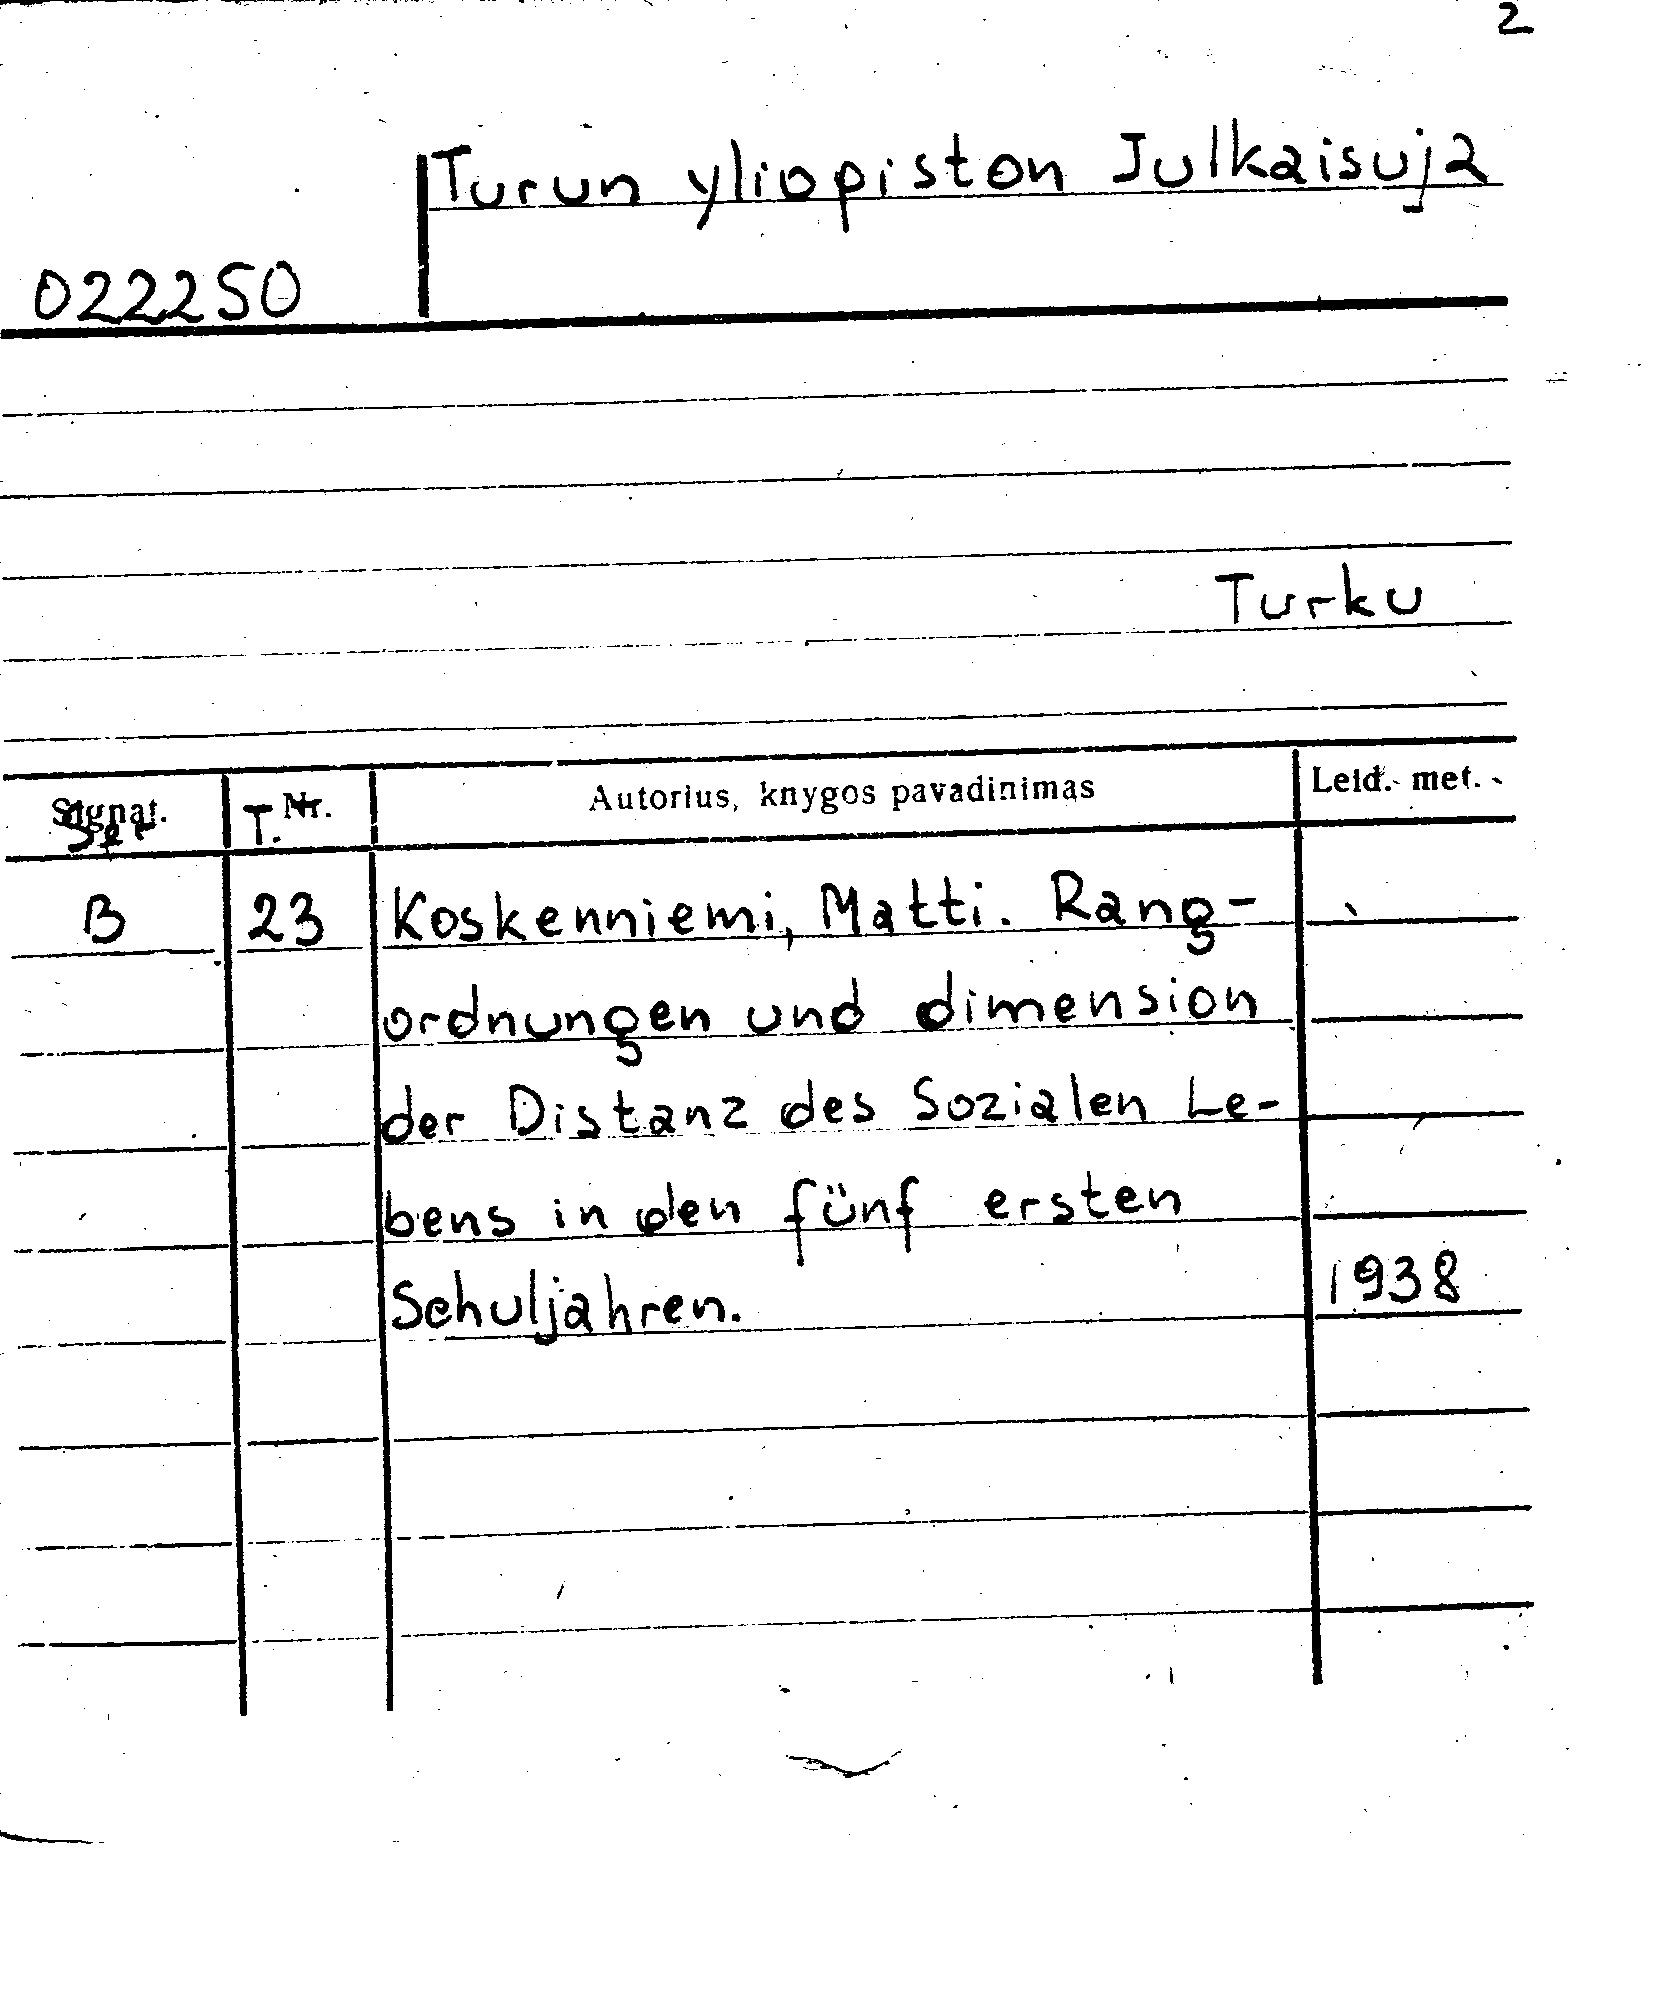 2
Turun yliopiston Julkaisuja
022250
Turku
Signat. Ser
T. Nr.
Autorius, knygos pavadinimas
Leid. met.
B 23 Koskenniemi, Matti. Rang-
ordnungen und dimension
der Distanz des Sozialen Le-
bens in den fünf ersten
Schuljahren. 1938